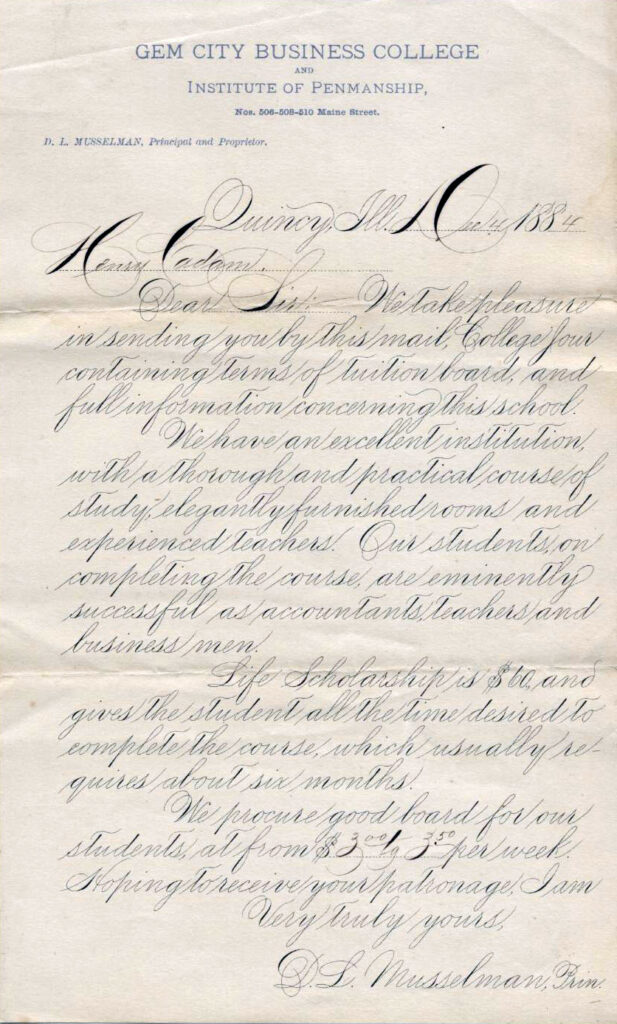 GEM CITY BUSINESS COLLEGE
AND
INSTITUTE OF PENMANSHIP,
Nos. 506-508-510 Maine Street.
D. L. MUSSELMAN, Principal and Proprietor.
Quincy, Ill. Dec 4, 1884
Henry Cadam.
Dear Sir: We take pleasure
in sending you by this mail, College Jour
containing terms of tuition board, and
full information concerning this school.
We have an excellent institution,
with a thorough and practical course of
study, elegantly furnished rooms and
experienced teachers. Our students, on
completing the course, are eminently
successful as accountants, teachers and
business men.
Life Scholarship is $60, and
gives the student all the time desired to
complete the course, which usually re-
quires about six months.
We procure good board for our
students, at from $3.00 to $3.50 per week.
Hoping to receive your patronage, I am
Very truly yours,
D. L. Musselman, Prin.